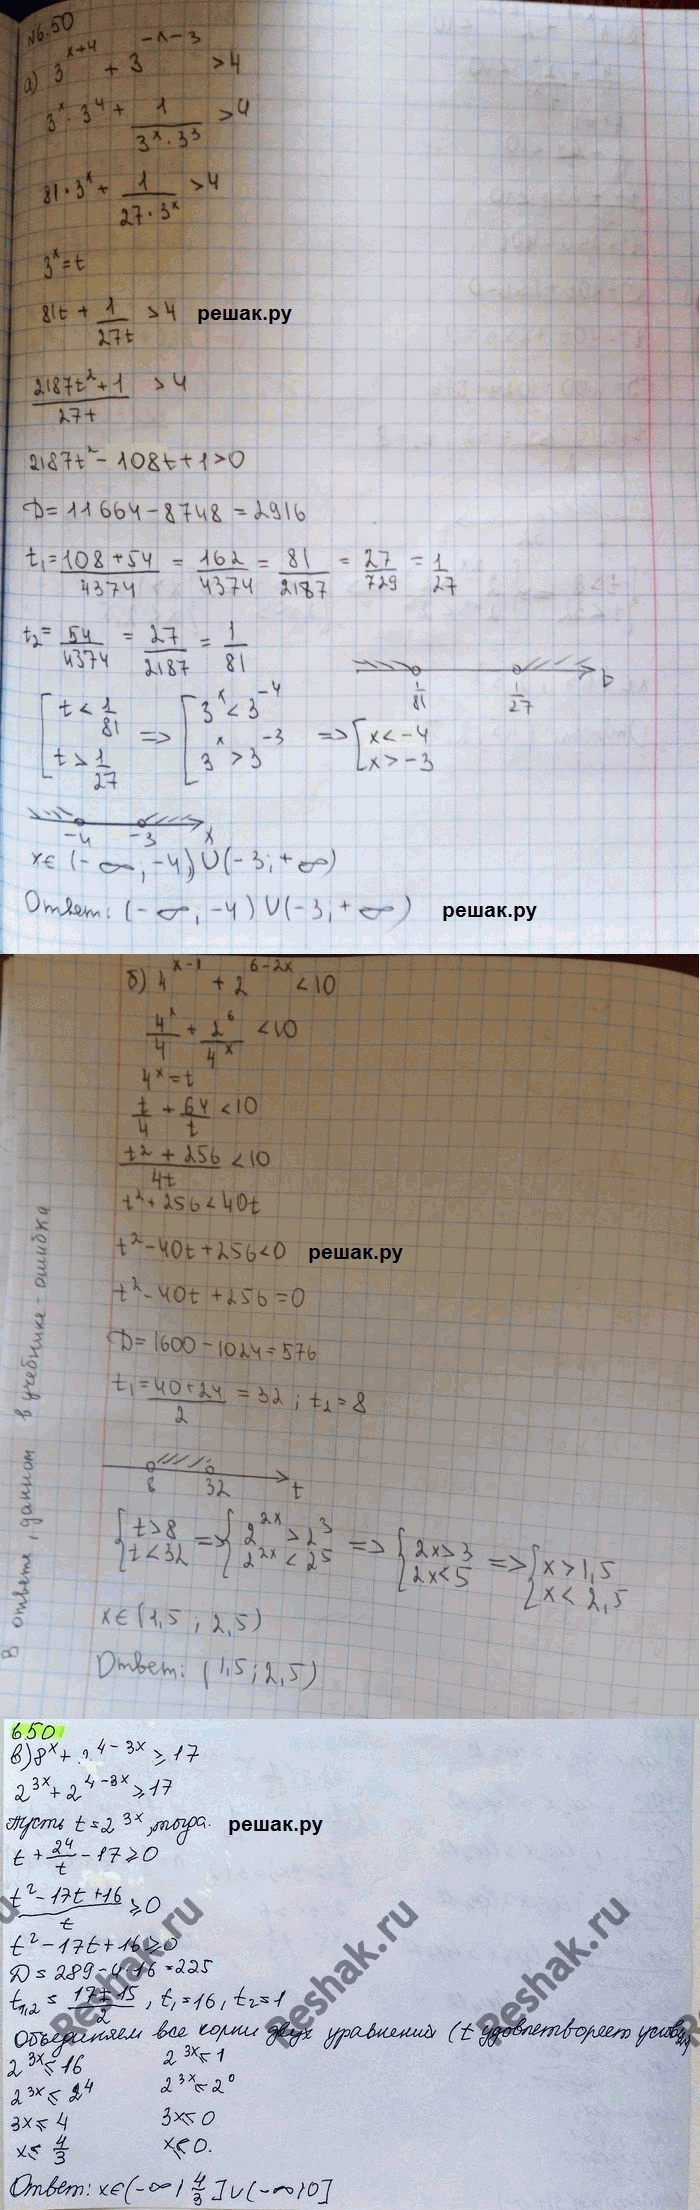 №6.50
а) 3^{x+4} + 3^{-x-3} > 4
3^x · 3^4 + 1/(3^x · 3^3) > 4
81 · 3^x + 1/(27 · 3^x) > 4
3^x = t
81t + 1/(27t) > 4 решак.ру
(2187t² + 1)/(27t) > 4
2187t² - 108t + 1 > 0
D = 11664 - 8748 = 2916
t₁ = (108 + 54)/4374 = 162/4374 = 81/2187 = 27/729 = 1/27
t₂ = 54/4374 = 27/2187 = 1/81
1/81 1/27 t
[ t < 1/81 => [ 3^x < 3^{-4} => [ x < -4
t > 1/27 3^x > 3^{-3} x > -3
-4 -3 x
x ∈ (-∞; -4) ∪ (-3; +∞)
Ответ: (-∞; -4) ∪ (-3; +∞) решак.ру
б) 4^{x-1} + 2^{6-2x} < 10
4^x/4 + 2^6/4^x < 10
4^x = t
t/4 + 64/t < 10
(t² + 256)/(4t) < 10
t² + 256 < 40t
t² - 40t + 256 < 0 решак.ру
t² - 40t + 256 = 0
D = 1600 - 1024 = 576
t₁ = (40 + 24)/2 = 32; t₂ = 8
8 32 t
{ t > 8 => { 2^{2x} > 2^3 => { 2x > 3 => { x > 1,5
t < 32 2^{2x} < 2^5 2x < 5 x < 2,5
x ∈ (1,5; 2,5)
Ответ: (1,5; 2,5)
В ответе, данном в учебнике - ошибка
650
в) 8^x + 2^{4-3x} ≥ 17
2^{3x} + 2^{4-3x} ≥ 17
Пусть t = 2^{3x}, тогда. решак.ру
t + 2^4/t - 17 ≥ 0
(t² - 17t + 16)/t ≥ 0
t² - 17t + 16 ≥ 0
D = 289 - 4·16 = 225
t₁,₂ = (17 ± 15)/2, t₁ = 16, t₂ = 1
Объединяем все корни двух уравнений (t удовлетворяет
2^{3x} ≤ 16 2^{3x} ≤ 1
2^{3x} ≤ 2^4 2^{3x} ≤ 2^0
3x ≤ 4 3x ≤ 0
x ≤ 4/3 x ≤ 0.
Ответ: x ∈ (-∞; 4/3] ∪ (-∞; 0]
Reshak.ru
Reshak.ru
Reshak.ru